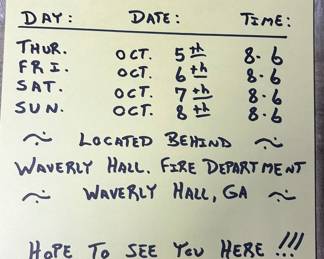 DAY: DATE: TIME:
THUR. OCT. 5th 8-6
FRI. OCT. 6th 8-6
SAT. OCT. 7th 8-6
SUN. OCT. 8th 8-6
~ LOCATED BEHIND ~
WAVERLY HALL. FIRE DEPARTMENT
~ WAVERLY HALL, GA ~
HOPE TO SEE YOU HERE !!!